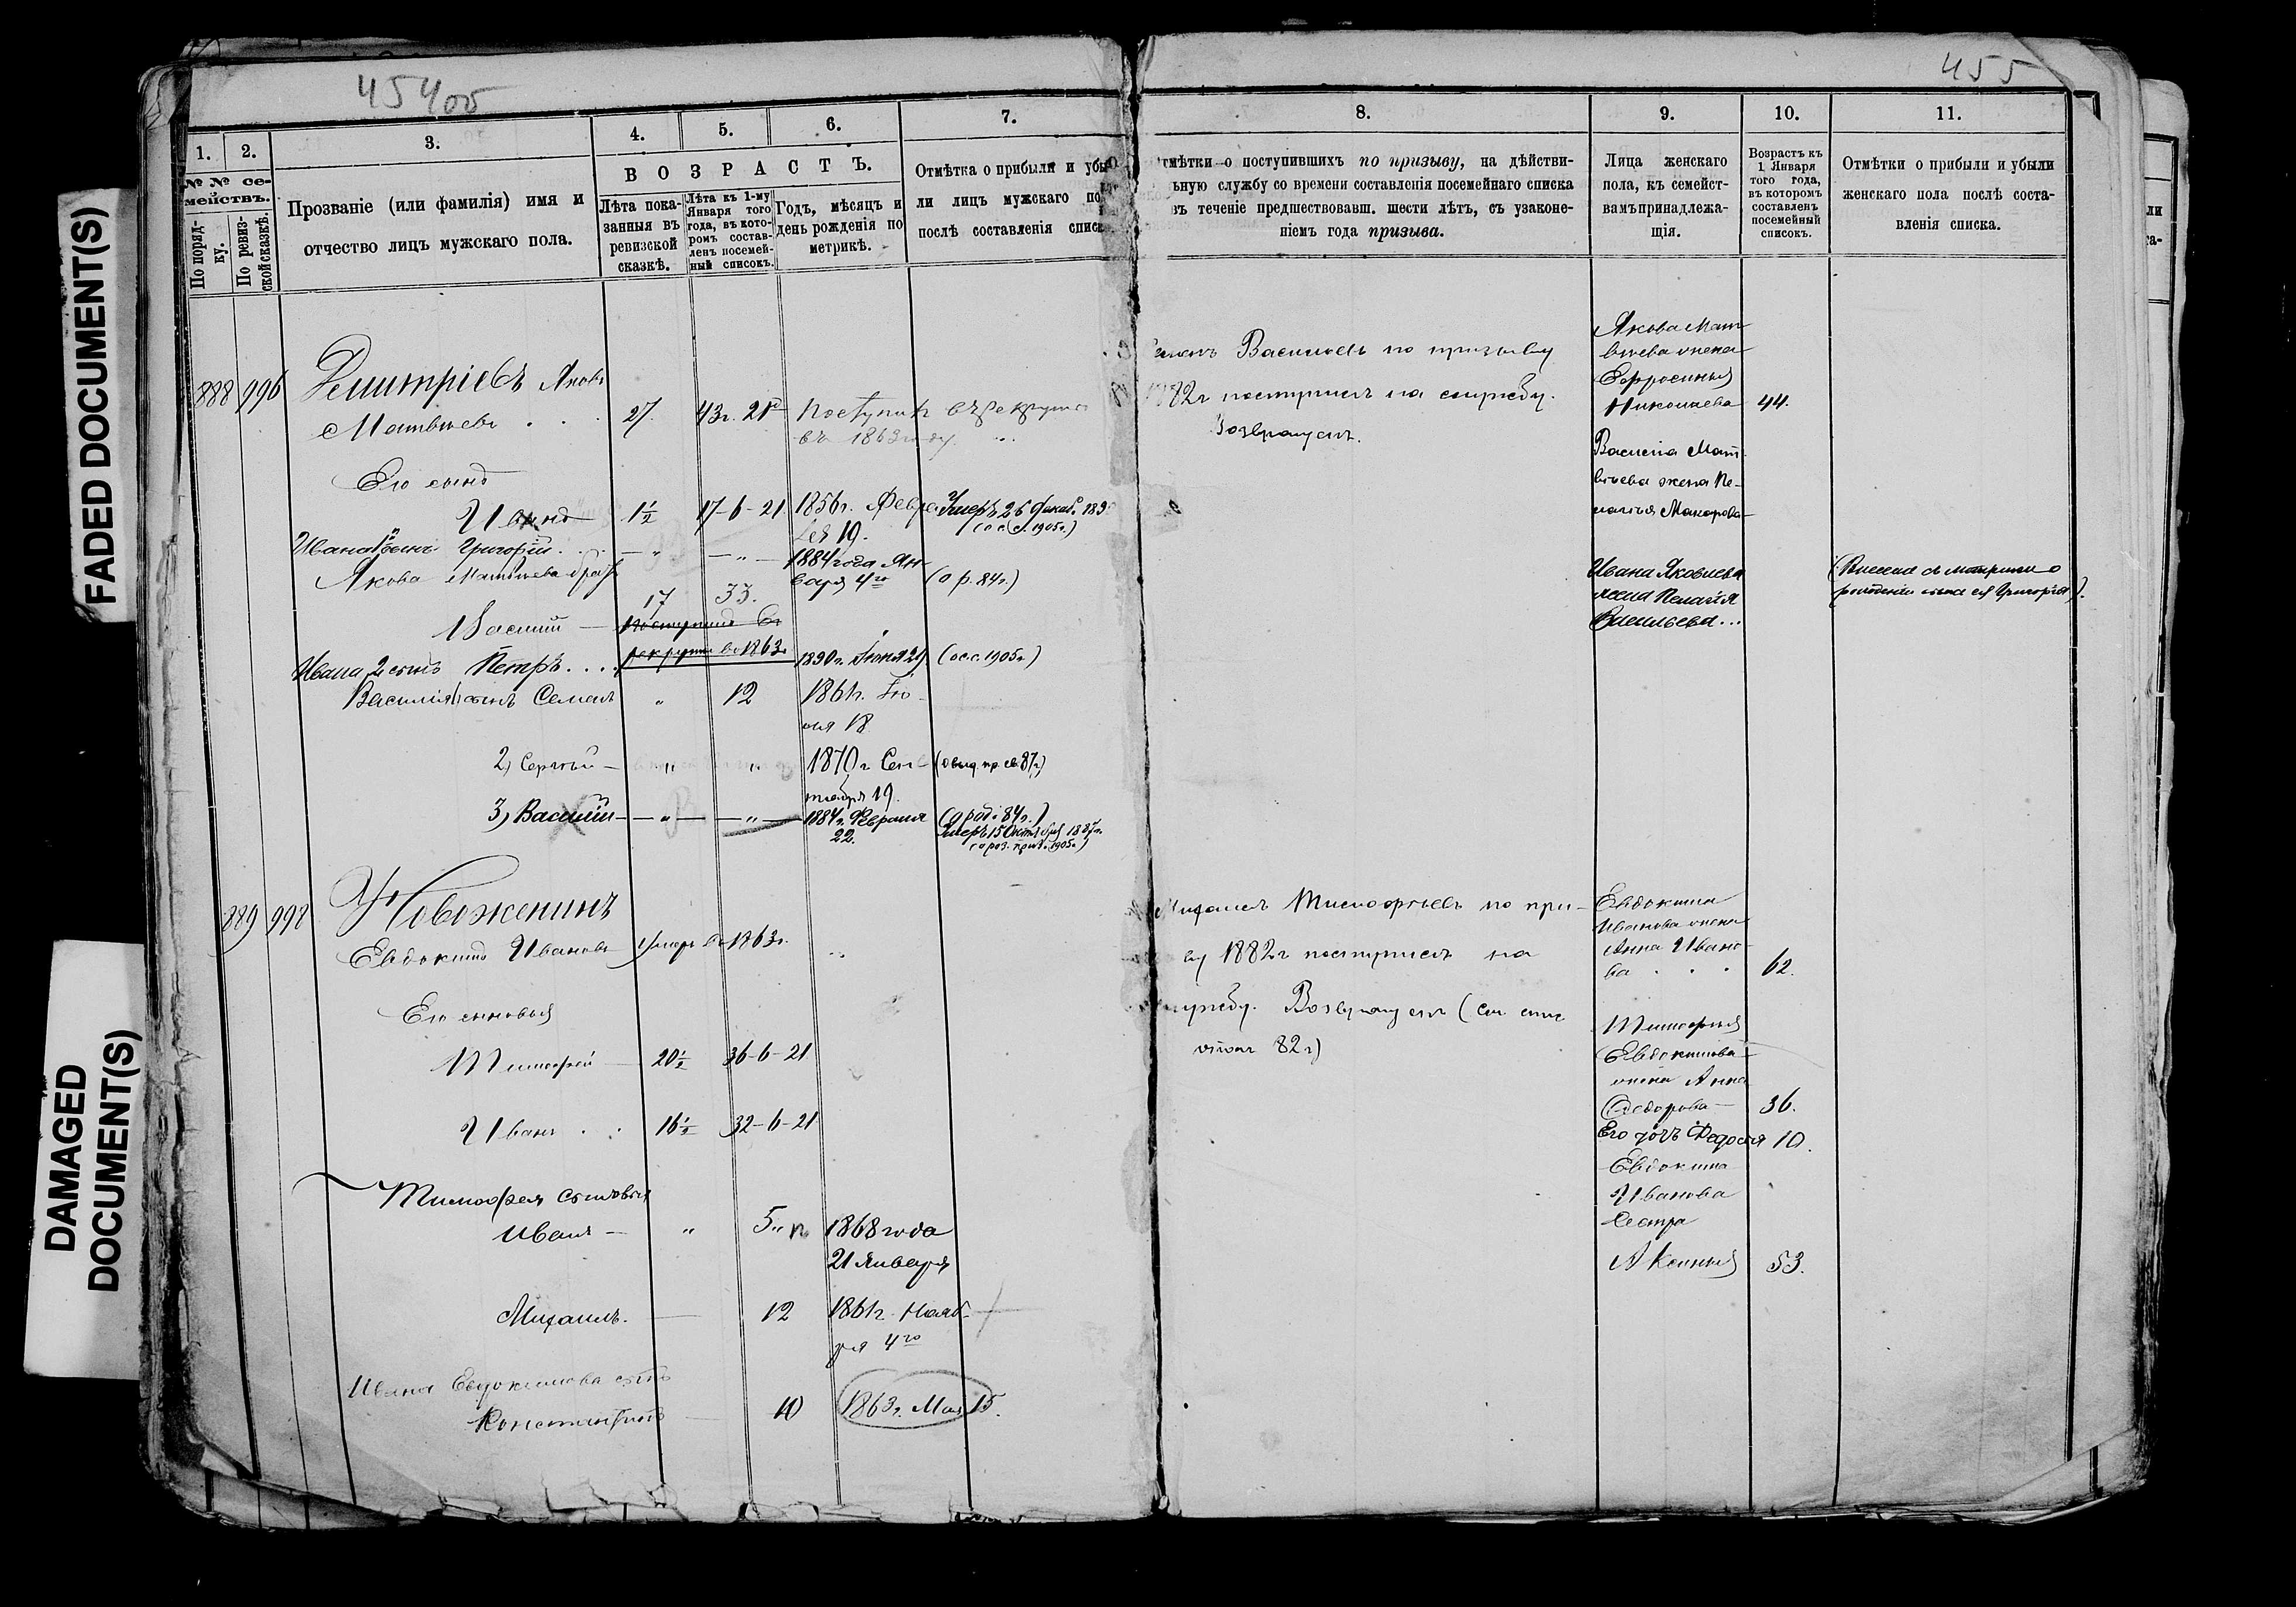 FADED DOCUMENT(S)
DAMAGED
DOCUMENT(S)
454об
1.
2.
3.
4.
5.
6.
7.
№ № се-
мействъ.
По поряд-
ку.
По ревиз-
ской сказкѣ.
Прозваніе (или фамилія) имя и
отчество лицъ мужскаго пола.
В О З Р А С Т Ъ.
Лѣта пока-
занныя въ
ревизской
сказкѣ.
Лѣта къ 1-му
Января того
года, въ кото-
ромъ состав-
ленъ посемей-
ный списокъ.
Годъ, мѣсяцъ и
день рожденія по
метрикѣ.
Отмѣтка о прибыли и убы
ли лицъ мужскаго по
послѣ составленія списк
888 996 Дмитріевъ Яковъ
Матвѣевъ . . . 27. 43г. 21д Поступилъ въ рекруты
въ 1863 году.
Его сынъ
Иванъ 1½ 17-6-21 1856г. Февра Умеръ 26 189
ля 19. (о с. сл. 1905г.)
Ивана сынъ Григорій . . . — „ — „ — 1884 года Ян
варя 4го (о р. 84г.)
Якова Матвѣева братъ
17 33.
Василій — поступилъ въ
рекруты въ 1863г
Ивана 2 сынъ Петръ . . . . 1890г. Іюня 29 (о с. с. 1905г)
Василія 1) сынъ Семенъ „ 12 1861г. Ію-
ля 18
2) Сергѣй — „ „ 1870г Сен- (о выд. пр. св. 87г.)
тября 19.
3) Василій — „ — „ — 1884г. Февраля (о род. 84г.)
22. Умеръ 15 Октября 188 г.
1905г.)
889 998 Новоженинъ
Евдокимъ Ивановъ Умеръ въ 1863г.
Его сыновья
Тимофей — 20½ 36-6-21
Иванъ . . 16½ 32-6-21
Тимофея сыновья
Иванъ — „ 5 „ 1868 года
21 Января
Михаилъ. — 12 1861г. Нояб-
ря 4го
Ивана Евдокимова сынъ
Константинъ — 10 1863г. Мая 15.
455
8.
9.
10.
11.
тмѣтки о поступившихъ по призыву, на дѣйстви-
ьную службу со времени составленія посемейнаго списка
въ теченіе предшествовавш. шести лѣтъ, съ узаконе-
ніемъ года призыва.
Лица женскаго
пола, къ семейст-
вамъ принадлежа-
щія.
Возрастъ къ
1 Января
того года,
въ которомъ
составленъ
посемейный
списокъ.
Отмѣтки о прибыли и убыли
женскаго пола послѣ соста-
вленія списка.
Семенъ Васильевъ по призыву
1882г поступилъ на службу.
Возвращенъ.
Якова Мат
вѣева жена
Ефросинья
Николаева 44.
Василія Мат-
вѣева жена Пе-
лагья Макарова
Ивана Яковлева
жена Пелагія
Васильева...
(Внесена съ метрики о
рожденіи сына ея Григорія).
Михаилъ Тимофѣевъ по при-
ву 1882г поступилъ на
службу. Возвращенъ (см.
82г)
Евдокима
Иванова жена
Анна Ивано-
ва . . . 62.
Тимофея
Евдокимова
жена Анна
Федорова — 36.
Его дочь Федосья 10.
Евдокима
Иванова
Сестра
Аксинья 53.